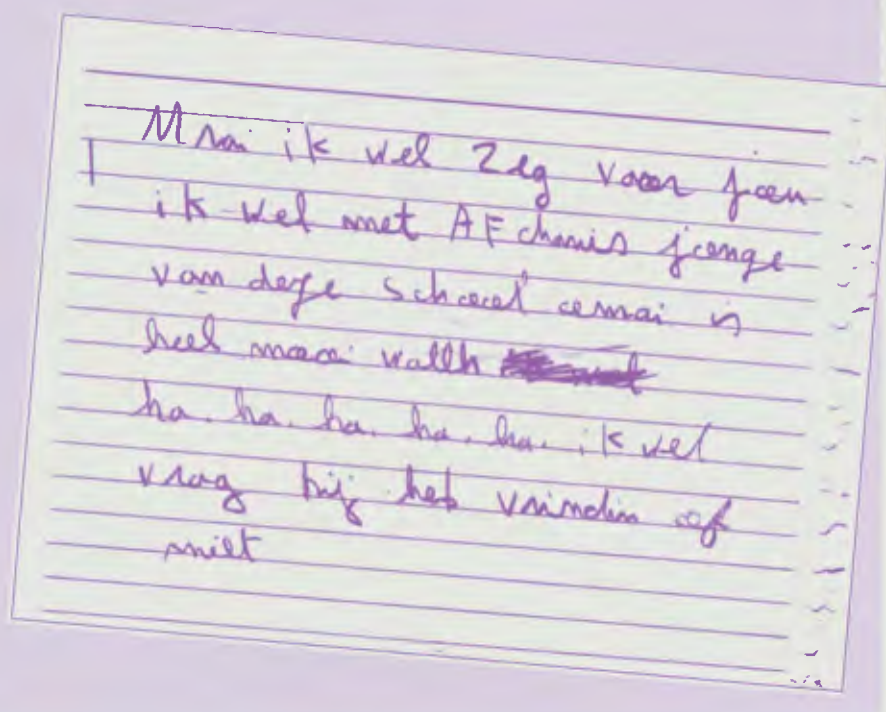 Mrai ik wel Zeg voor jou
ik wel met AFchanis jonge
van deze school omai is
heel mooi wallh
ha. ha. ha. ha. ha. ik wel
vrag hij heb vrindin of
niet